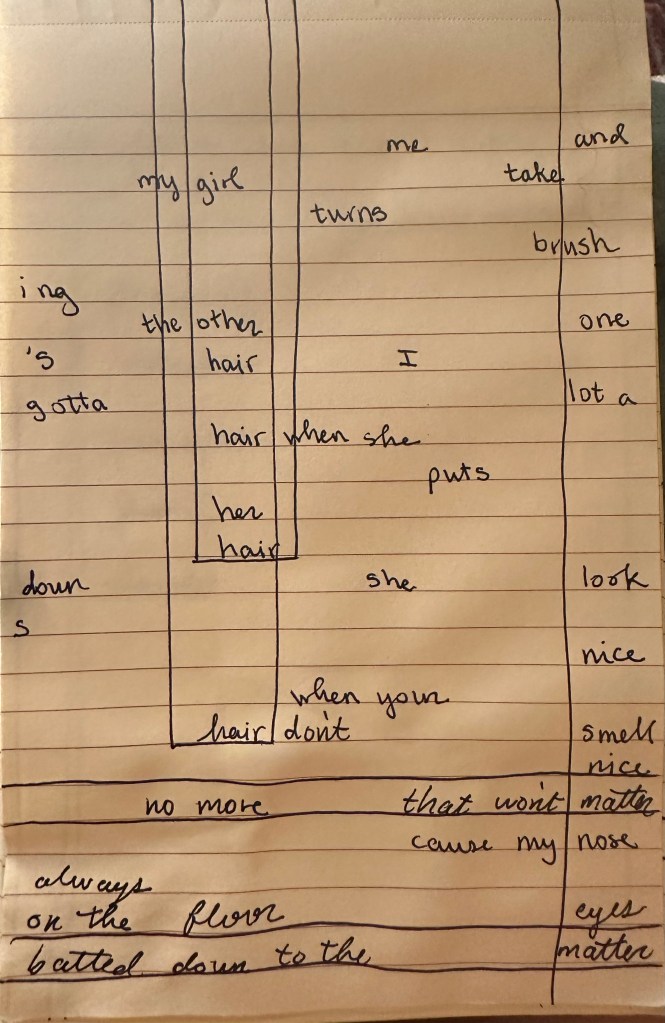 me and
my girl take
turns
brush
ing
the other one
's hair I
gotta lot a
hair when she
puts
her
hair
down she look
s
nice
when your
hair don't smell
nice
no more that won't matter
cause my nose
always
on the floor eyes
batted down to the matter